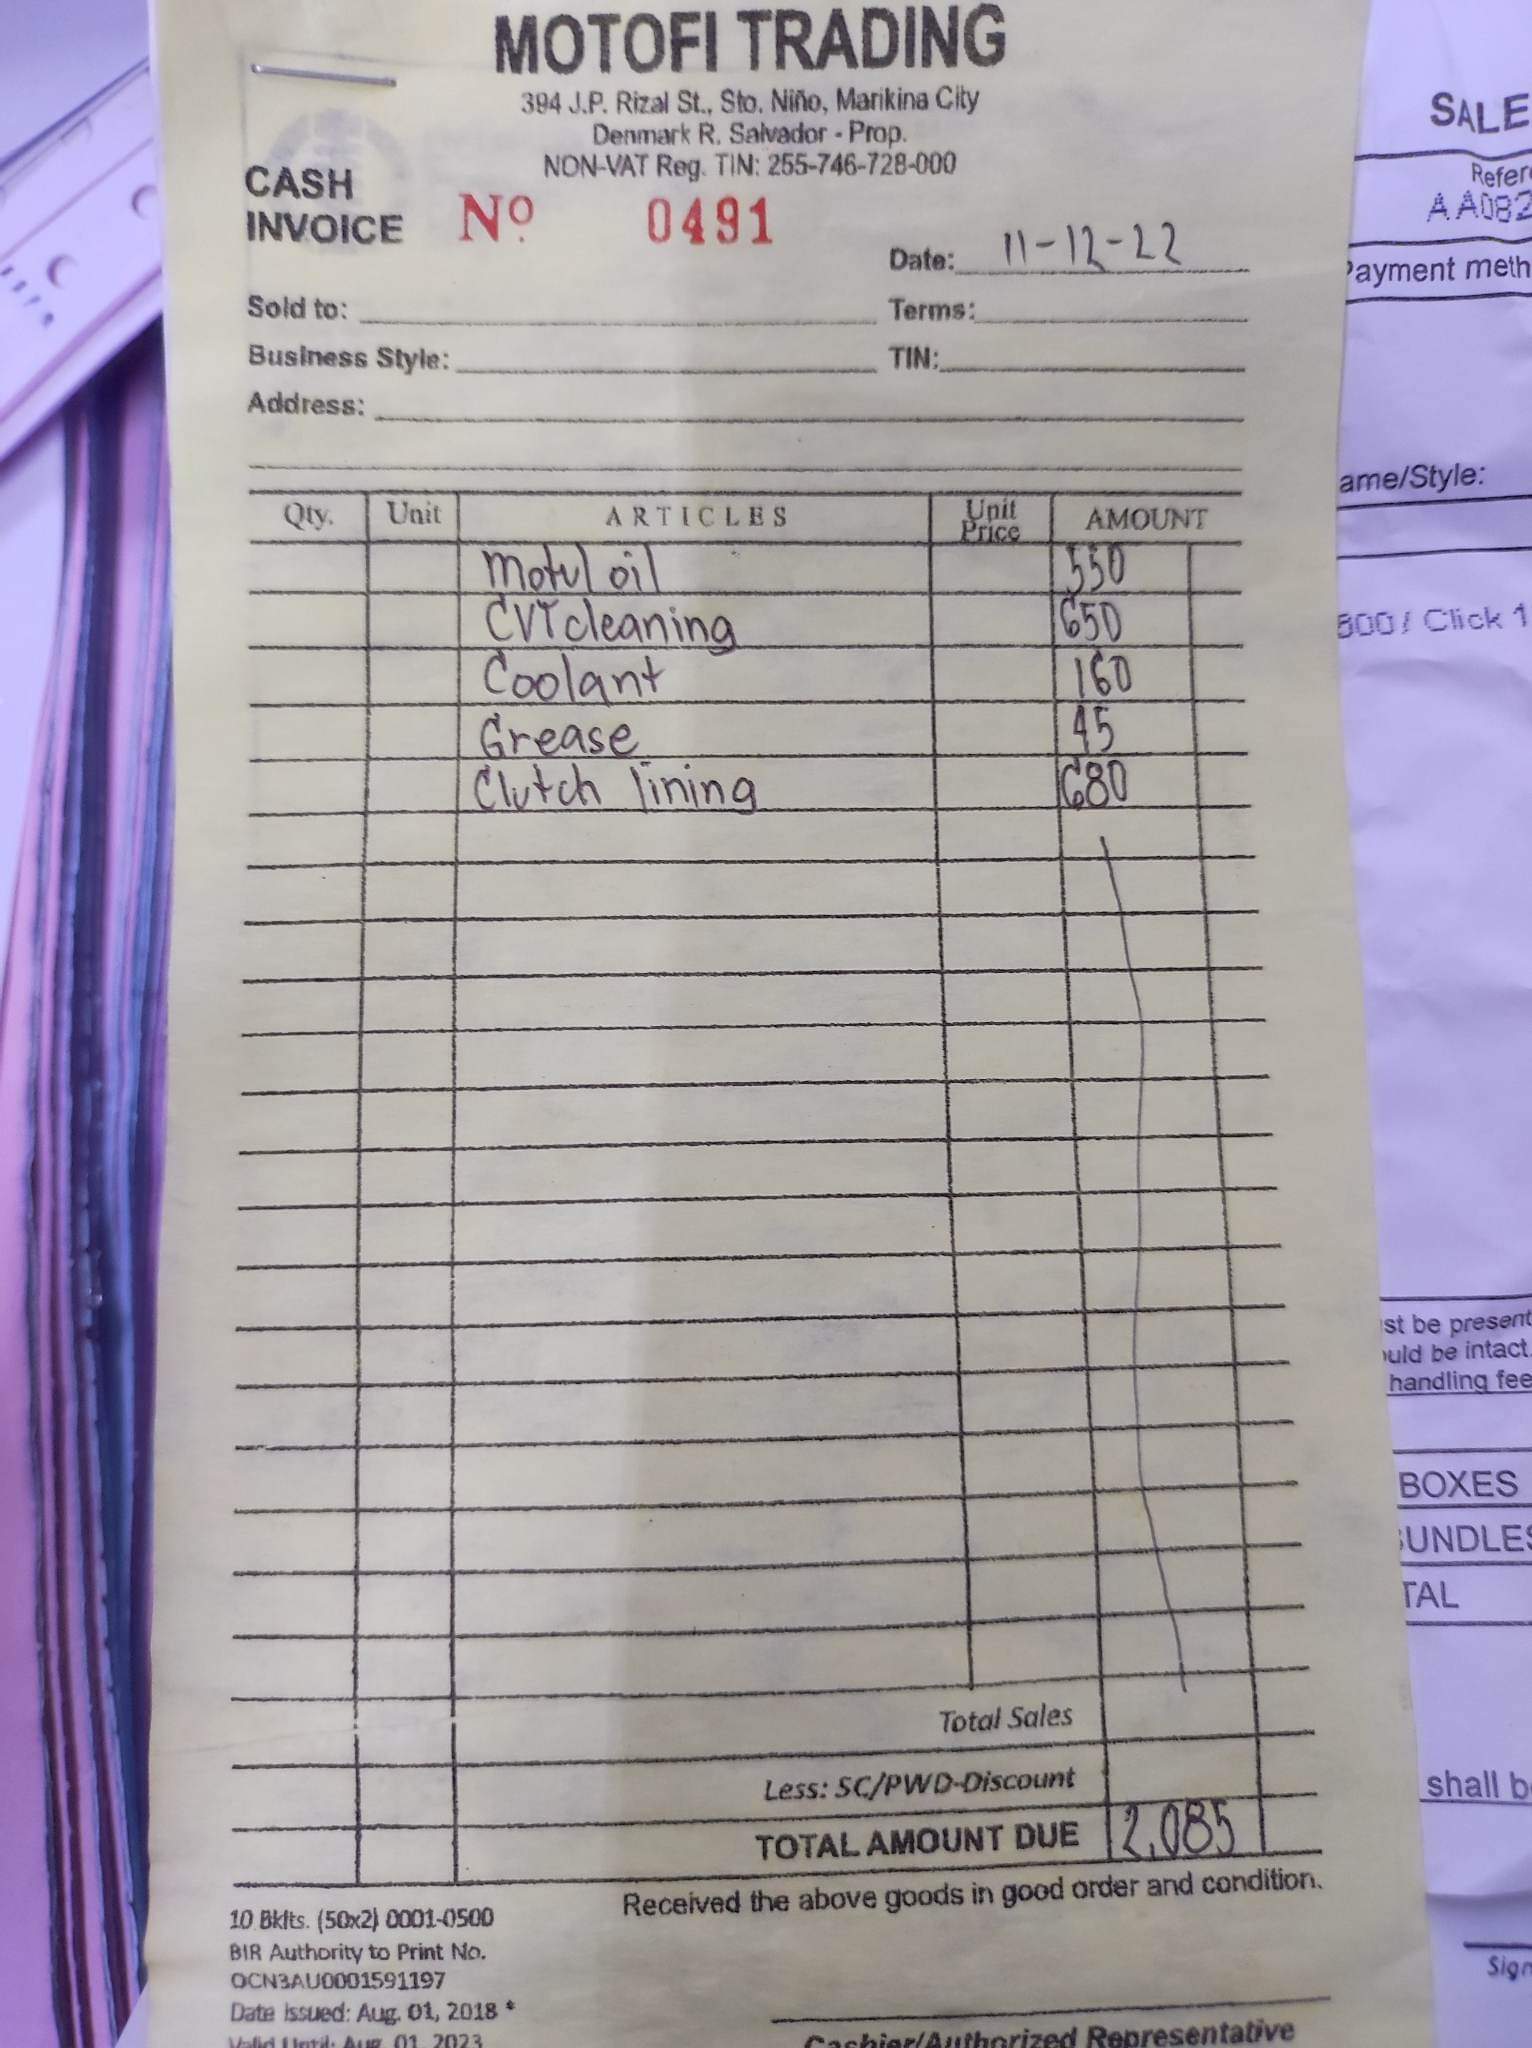 MOTOFI TRADING
394 J.P. Rizal St., Sto. Niño, Marikina City
Denmark R. Salvador - Prop.
NON-VAT Reg. TIN: 255-746-728-000
CASH
INVOICE
Nº 0491
Date: 11-12-22
Sold to: Terms:
Business Style: TIN:
Address:
Qty. Unit ARTICLES Unit Price AMOUNT
Motul oil 550
CVT cleaning 650
Coolant 160
Grease 45
Clutch lining 680
Total Sales
Less: SC/PWD-Discount
TOTAL AMOUNT DUE 2,085
Received the above goods in good order and condition.
10 Bklts. (50x2) 0001-0500
BIR Authority to Print No.
OCN3AU0001591197
Date Issued: Aug. 01, 2018 *
Valid Until: Aug. 01, 2023
Cashier/Authorized Representative
SALE
AA082
ayment meth
ame/Style:
/ Click 1
st be present
uld be intact.
handling fee
BOXES
UNDLES
TAL
shall b
Sign